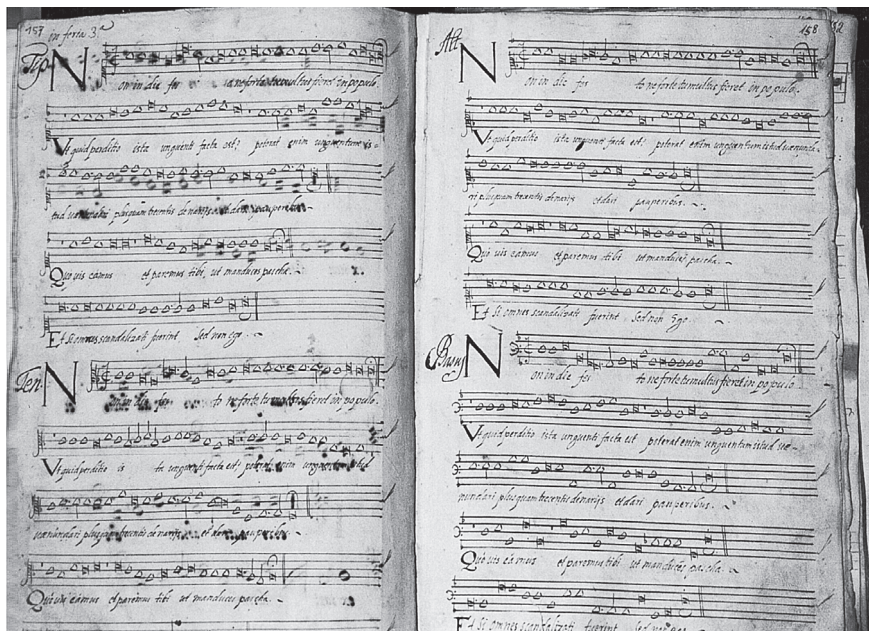 157 in feria 3.ª
Tip Non in die fes ta ne forte tumultus fieret in populo.
Ut quid perditio ista unguenti facta est? poterat enim unguentum is-
tud plusquam trecentis denarijs et dari pauperibus.
Quo vis eamus et paremus tibi, ut manduces pascha.
Et si omnes scandalizati fuerint sed non Ego.
Ten Non in die fes to ne forte tumultus fieret in populo.
Ut quid perditio is ta unguenti facta est? poterat enim unguentum istud
venundari plusquam trecentis denarijs et dari pauperibus.
Quo vis eamus et paremus tibi ut manduces pascha.
158
Alt Non in die fes to ne forte tumultus fieret in populo.
Ut quid perditio ista unguenti facta est? poterat enim unguentum istud venunda-
ri plusquam trecentis denarijs et dari pauperibus.
Quo vis eamus et paremus tibi ut manduces pascha.
Et si omnes scandalizati fuerint sed non Ego
Non in die fes to ne forte tumultus fieret in populo
Ut quid perditio ista unguenti facta est poterat enim unguentum istud ve-
nundari plusquam trecentis denarijs et dari pauperibus.
Quo vis eamus et paremus tibi ut manduces pascha.
Et si omnes scandalizati fuerint sed non ego